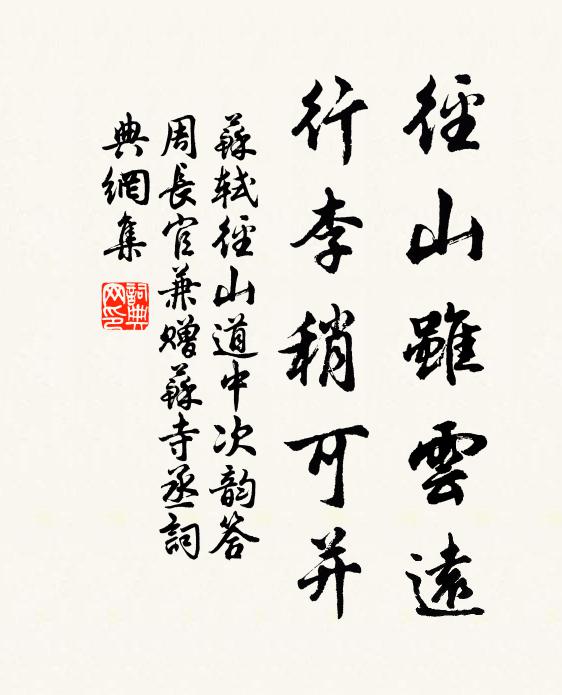 徑山雖雲遠
行李稍可并
蘇軾徑山道中次韵答
周長官兼贈蘇寺丞詞
典網集
詞典网印